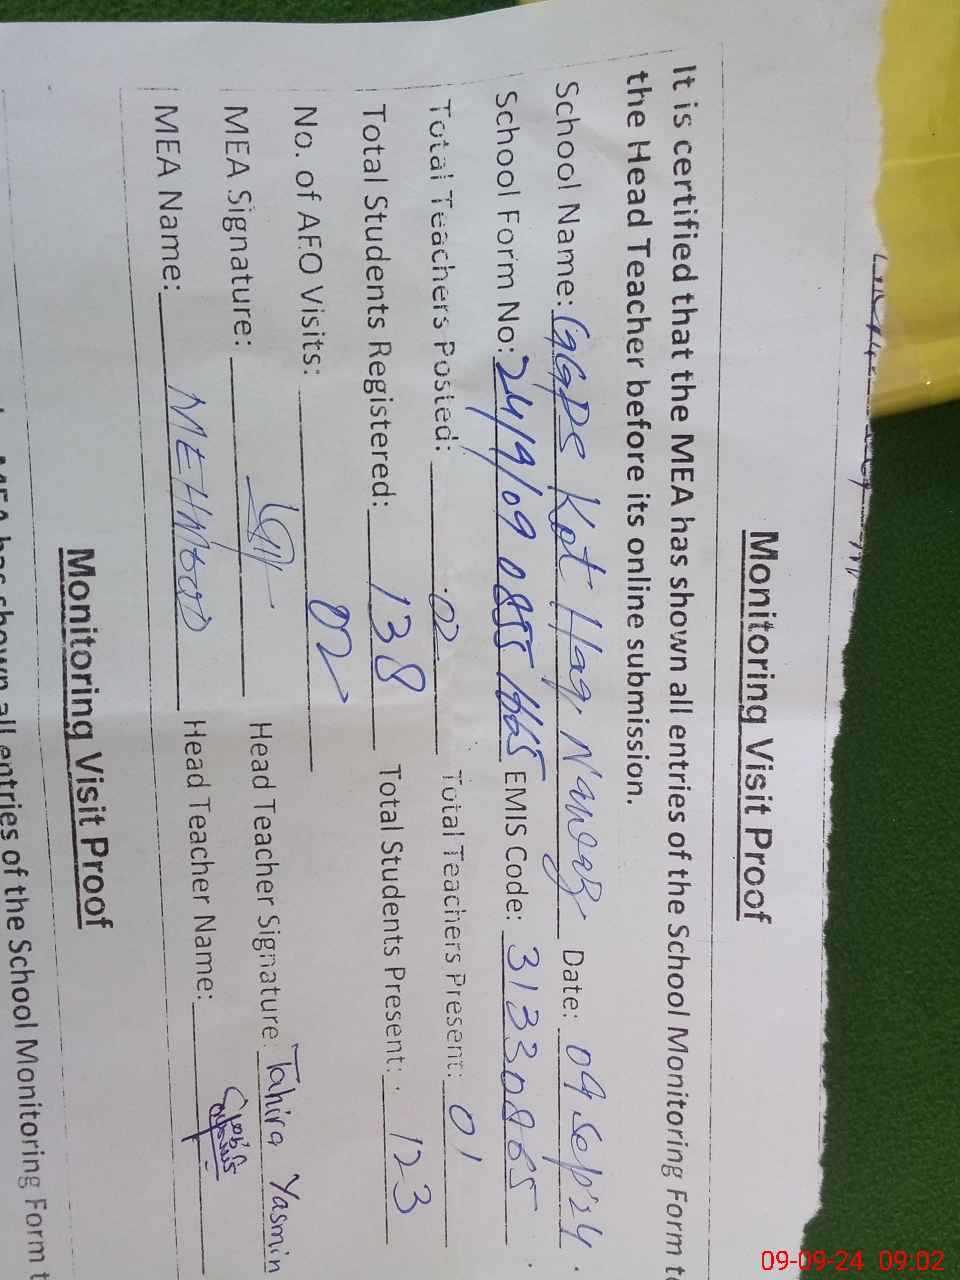 Monitoring Visit Proof
It is certified that the MEA has shown all entries of the School Monitoring Form to
the Head Teacher before its online submission.
School Name: GGPS Kot Haq Nawaz Date: 09 Sep 24
School Form No: 24/9/09 0855 1665 EMIS Code: 31330865
Total Teachers Posted: 02 Total Teachers Present: 01
Total Students Registered: 138 Total Students Present: 123
No. of AEO Visits: 02
MEA Signature: Head Teacher Signature: Tahira Yasmin
MEA Name: MEHMOOD Head Teacher Name:
Monitoring Visit Proof
MEA has shown all entries of the School Monitoring Form t
09-09-24 09:02